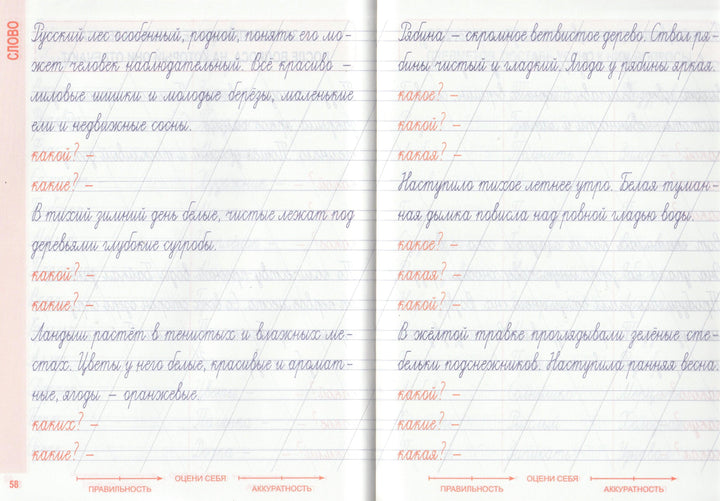 СЛОВО
Русский лес особенный, родной, понять его мо-
жет человек наблюдательный. Всё красиво –
миловые шишки и молодые берёзы, маленькие
ели и недвижные сосны.
какой? –
какие? –
В тихий зимний день белые, чистые лежат под
деревьями глубокие сугробы.
какой? –
какие? –
Ландыш растёт в тенистых и влажных ме-
стах. Цветы у него белые, красивые и аромат-
ные, ягоды – оранжевые.
каких? –
какие? –
58
ПРАВИЛЬНОСТЬ
ОЦЕНИ СЕБЯ
АККУРАТНОСТЬ
Рябина – скромное ветвистое дерево. Ствол ря-
бины чистый и гладкий. Ягода у рябины яркая.
какое? –
какой? –
какая? –
Наступило тихое летнее утро. Белая туман-
ная дымка повисла над ровной гладью воды.
какое? –
какая? –
какой? –
В жёлтой травке проглядывали зелёные сте-
бельки подснежников. Наступила ранняя весна.
какой? –
какие? –
какая? –
ПРАВИЛЬНОСТЬ
ОЦЕНИ СЕБЯ
АККУРАТНОСТЬ